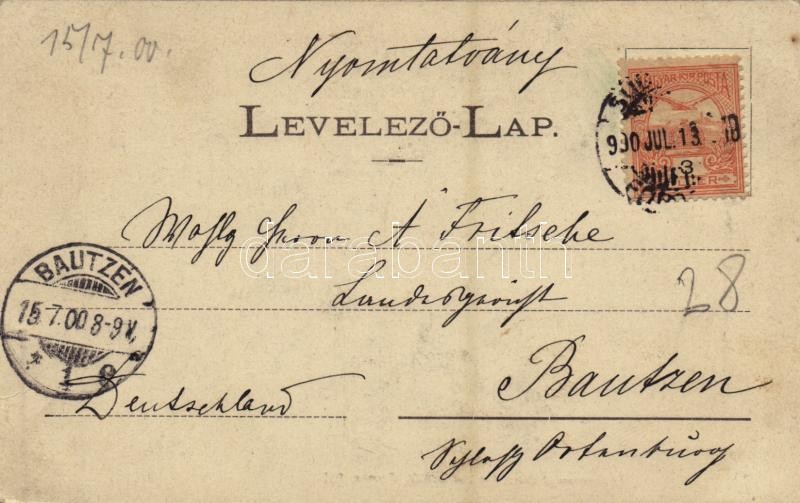 15/7.00.
Nyomtatvány
LEVELEZŐ-LAP.
MAGYAR KIR. POSTA
900 JUL. 13.
3
Wohlg Herrn A Fritsche
darabanth
BAUTZEN
15.7.00 8-9V.
* 1
Landesgericht
28
Bautzen
Deutschland
Schloß Ortenburg